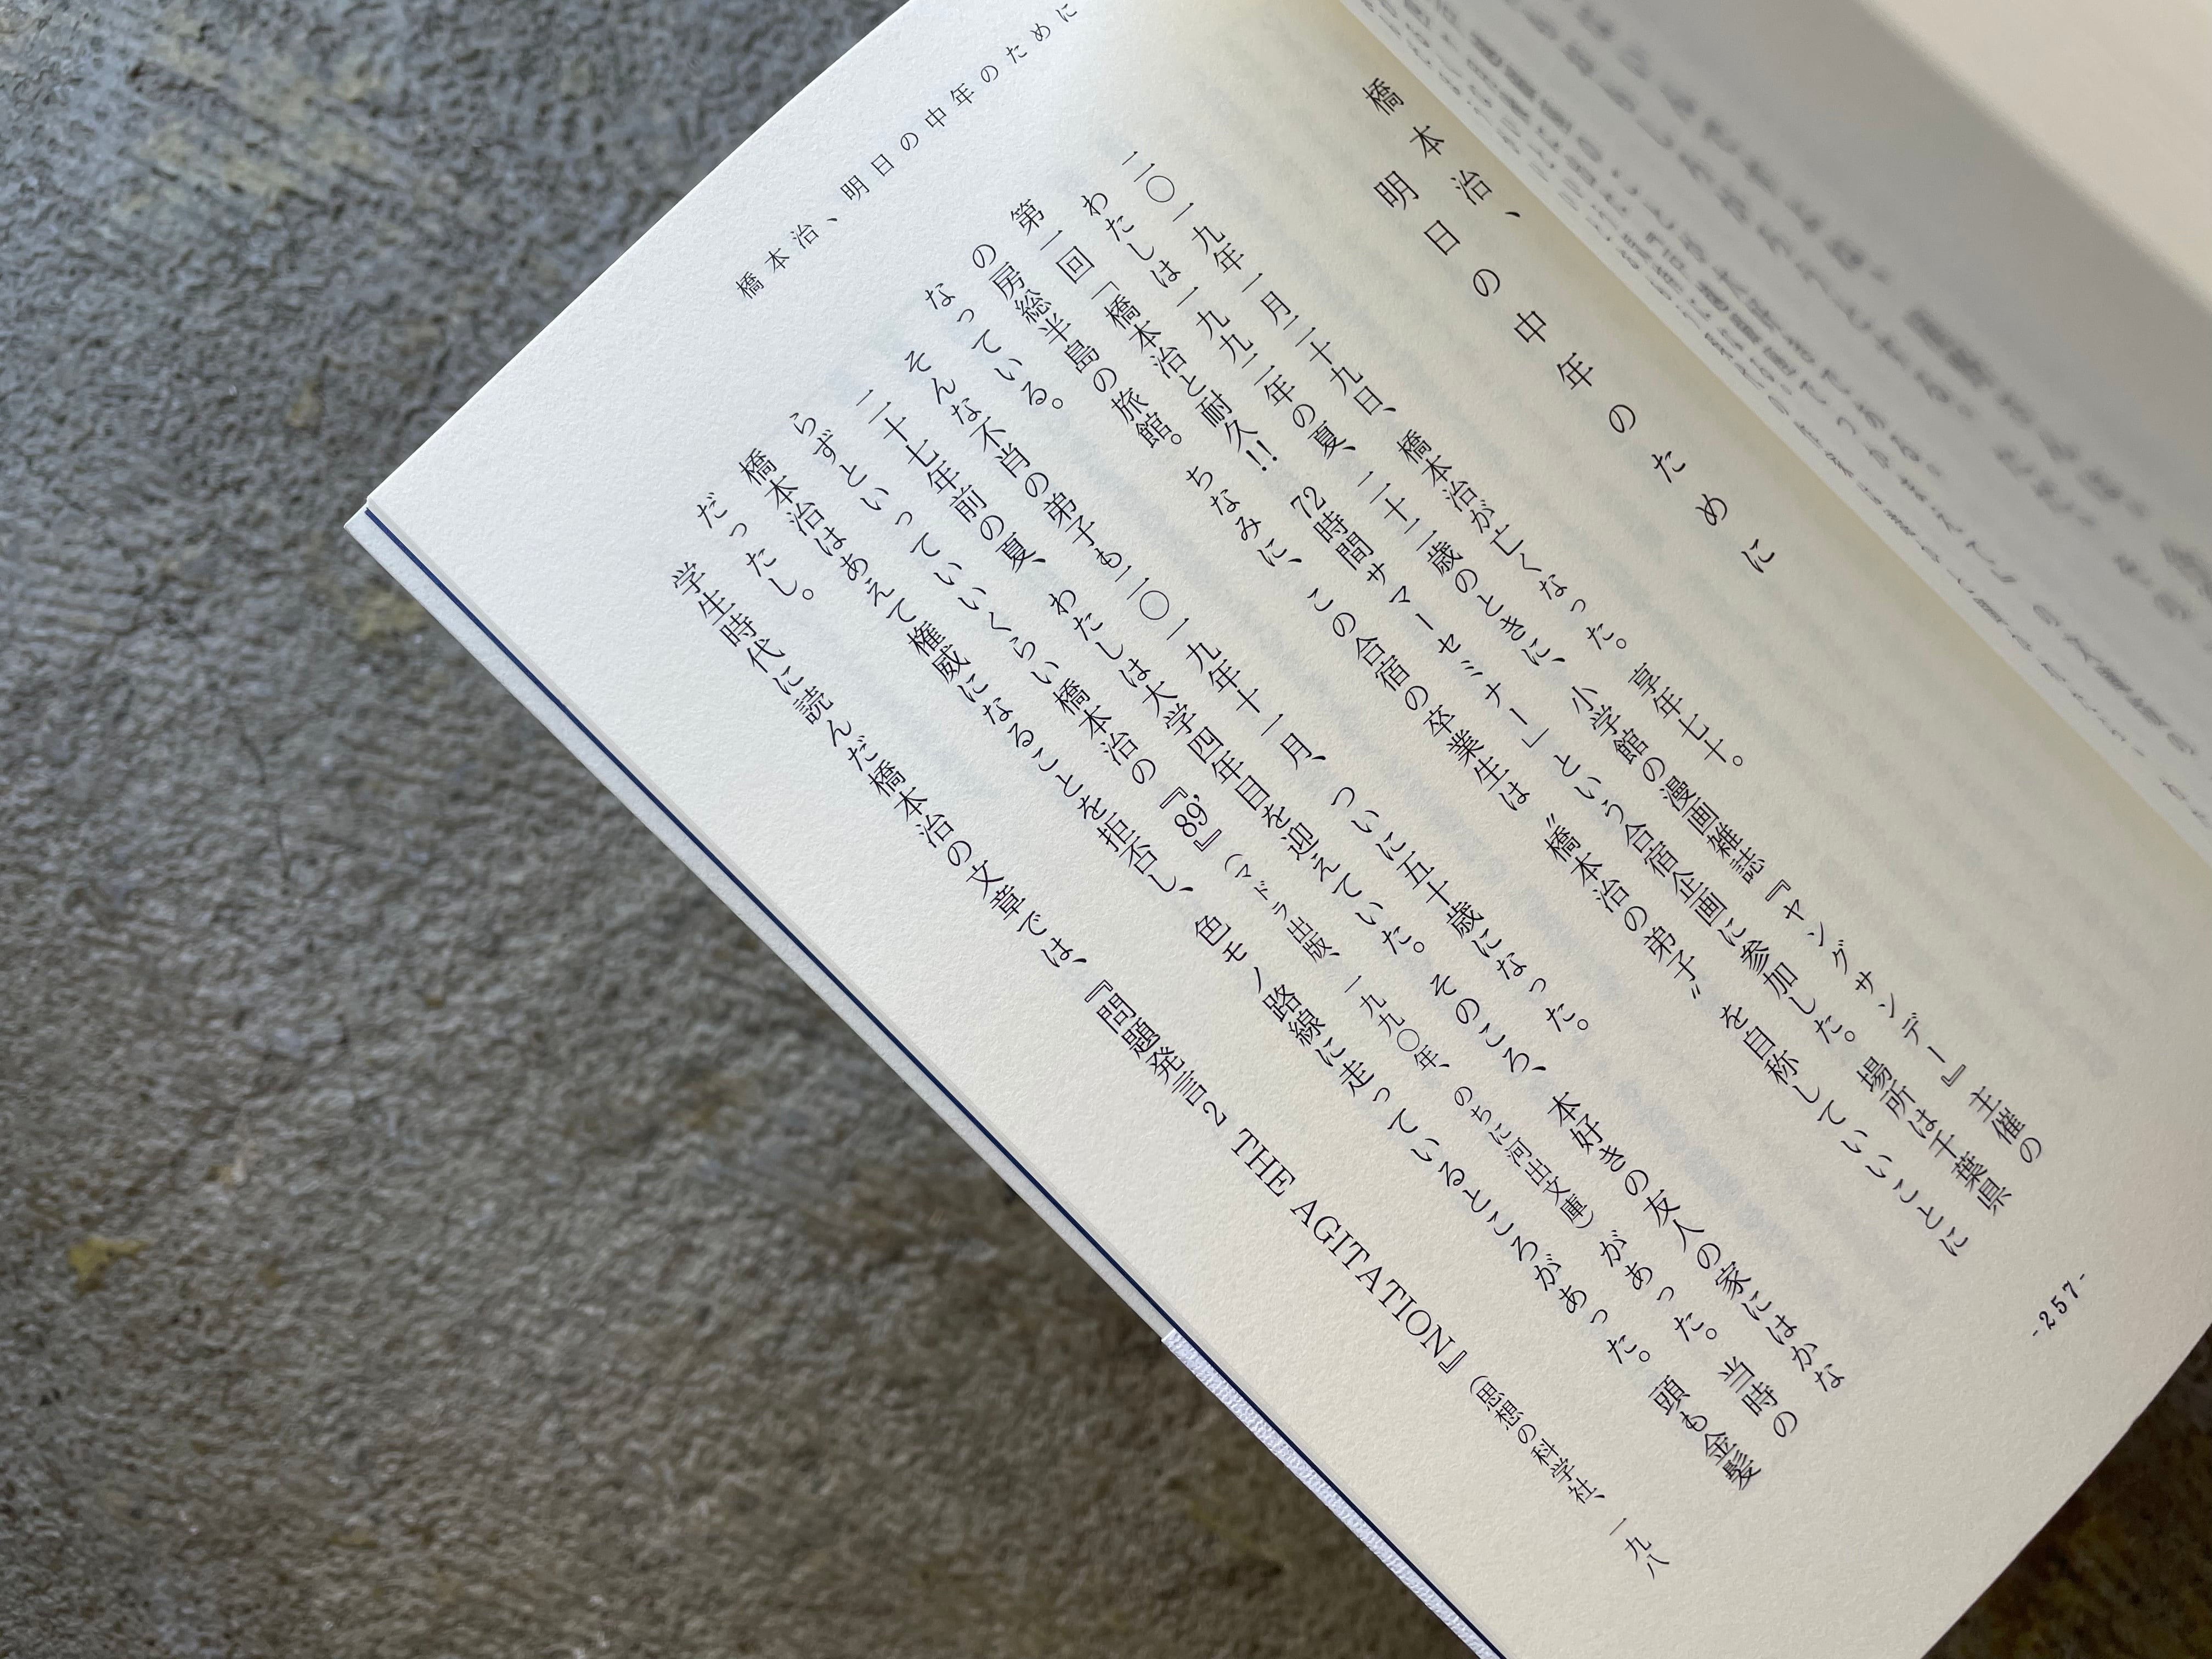 橋本治、
明日の中年のために
二〇一九年一月二十九日、橋本治が亡くなった。享年七十。
わたしは一九九二年の夏、二十二歳のときに、小学館の漫画雑誌『ヤングサンデー』主催の
第一回「橋本治と耐久!! 72時間サマーセミナー」という合宿企画に参加した。場所は千葉県
の房総半島の旅館。ちなみに、この合宿の卒業生は〝橋本治の弟子〟を自称していいことに
なっている。
そんな不肖の弟子も二〇一九年十一月、ついに五十歳になった。
二十七年前の夏、わたしは大学四年目を迎えていた。そのころ、本好きの友人の家にはかな
らずといっていいくらい橋本治の『89’』(マドラ出版、一九九〇年、のちに河出文庫)があった。当時の
橋本治はあえて権威になることを拒否し、色モノ路線に走っているところがあった。頭も金髪
だったし。
学生時代に読んだ橋本治の文章では、『問題発言2 THE AGITATION』(思想の科学社、一九八
橋本治、明日の中年のために
-257-